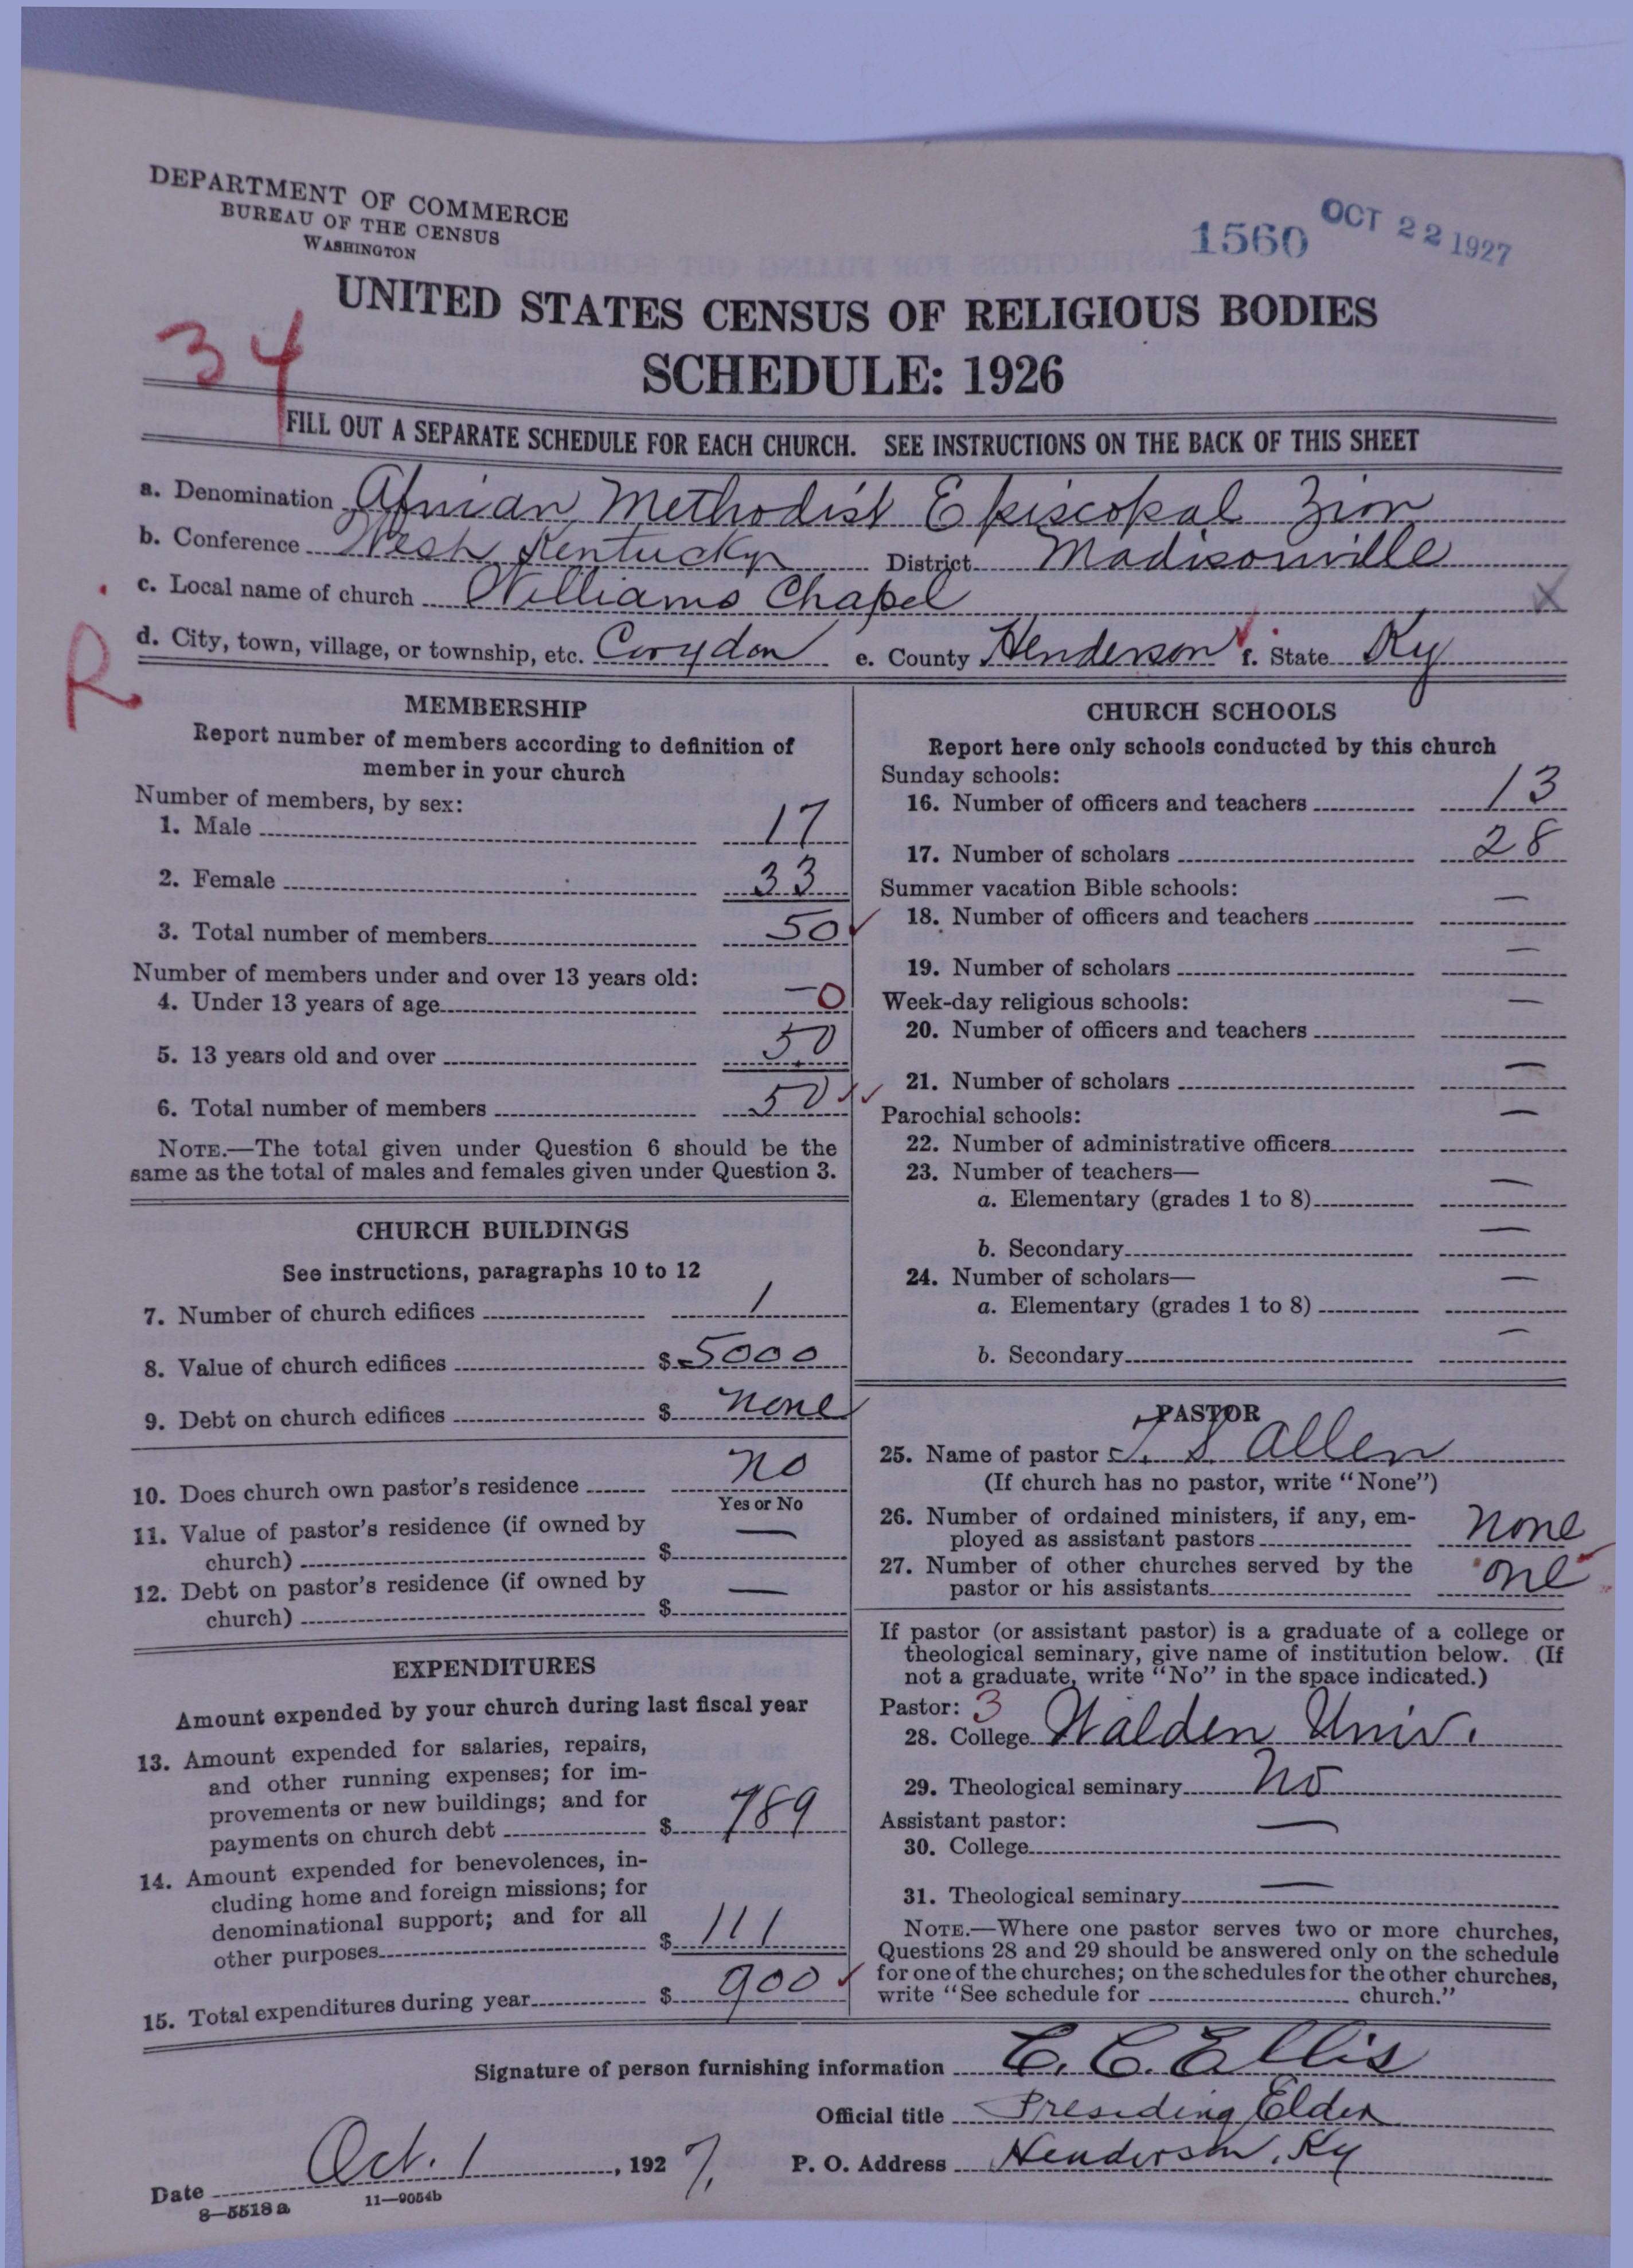 DEPARTMENT OF COMMERCE
BUREAU OF THE CENSUS
WASHINGTON
1560 OCT 22 1927
UNITED STATES CENSUS OF RELIGIOUS BODIES
34
SCHEDULE: 1926
FILL OUT A SEPARATE SCHEDULE FOR EACH CHURCH. SEE INSTRUCTIONS ON THE BACK OF THIS SHEET
a. Denomination African Methodist Episcopal Zion
b. Conference West Kentucky District Madisonville
c. Local name of church Williams Chapel
R
d. City, town, village, or township, etc. Corydon e. County Henderson f. State Ky
MEMBERSHIP
Report number of members according to definition of
member in your church
Number of members, by sex:
1. Male 17
2. Female 33
3. Total number of members 50
Number of members under and over 13 years old:
4. Under 13 years of age —0
5. 13 years old and over 50
6. Total number of members 50
NOTE.—The total given under Question 6 should be the
same as the total of males and females given under Question 3.
CHURCH BUILDINGS
See instructions, paragraphs 10 to 12
7. Number of church edifices 1
8. Value of church edifices $ 5000
9. Debt on church edifices $ none
10. Does church own pastor's residence no
Yes or No
11. Value of pastor's residence (if owned by
church) $ —
12. Debt on pastor's residence (if owned by
church) $ —
EXPENDITURES
Amount expended by your church during last fiscal year
13. Amount expended for salaries, repairs,
and other running expenses; for im-
provements or new buildings; and for
payments on church debt $ 789
14. Amount expended for benevolences, in-
cluding home and foreign missions; for
denominational support; and for all
other purposes $ 111
15. Total expenditures during year $ 900
CHURCH SCHOOLS
Report here only schools conducted by this church
Sunday schools:
16. Number of officers and teachers 13
17. Number of scholars 28
Summer vacation Bible schools:
18. Number of officers and teachers —
19. Number of scholars —
Week-day religious schools:
20. Number of officers and teachers —
21. Number of scholars —
Parochial schools:
22. Number of administrative officers —
23. Number of teachers—
a. Elementary (grades 1 to 8) —
b. Secondary —
24. Number of scholars—
a. Elementary (grades 1 to 8) —
b. Secondary —
PASTOR
25. Name of pastor J. S. Allen
(If church has no pastor, write "None")
26. Number of ordained ministers, if any, em-
ployed as assistant pastors none
27. Number of other churches served by the
pastor or his assistants one
If pastor (or assistant pastor) is a graduate of a college or
theological seminary, give name of institution below. (If
not a graduate, write "No" in the space indicated.)
Pastor: 3
28. College Walden Univ.
29. Theological seminary No
Assistant pastor:
30. College —
31. Theological seminary —
NOTE.—Where one pastor serves two or more churches,
Questions 28 and 29 should be answered only on the schedule
for one of the churches; on the schedules for the other churches,
write "See schedule for church."
Signature of person furnishing information C. C. Ellis
Official title Presiding Elder
Date Oct. 1, 1927. P. O. Address Henderson, Ky
8—5518 a 11—9054b